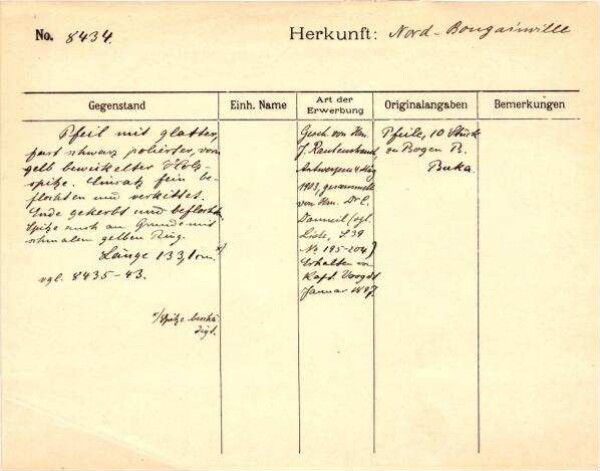 No. 8434.
Herkunft: Nord-Bougainville
Gegenstand
Einh. Name
Art der Erwerbung
Originalangaben
Bemerkungen
Pfeil mit glatter,
fast schwarz polierter, vorn
gelb bewickelter Holz-
spitze. Einsatz fein be-
flochten und verkittet.
Ende gekerbt und beflochten.
Spitze auch am Grunde mit
schmalem gelben Ring.
Länge 133,1 cm. x)
vgl. 8435-43.
x) Spitze beschä-
digt.
Gesch. von Hrn.
J. Rautenstrauch,
Antwerpen
1903, gesammelt
von Hrn. Dr. E.
Danneil (vgl.
Liste, S. 39
No 195-204)
Erhalten von
Kapt. Voogdt
Januar
Pfeile, 10 Stück
zu Bogen R.
Buka.